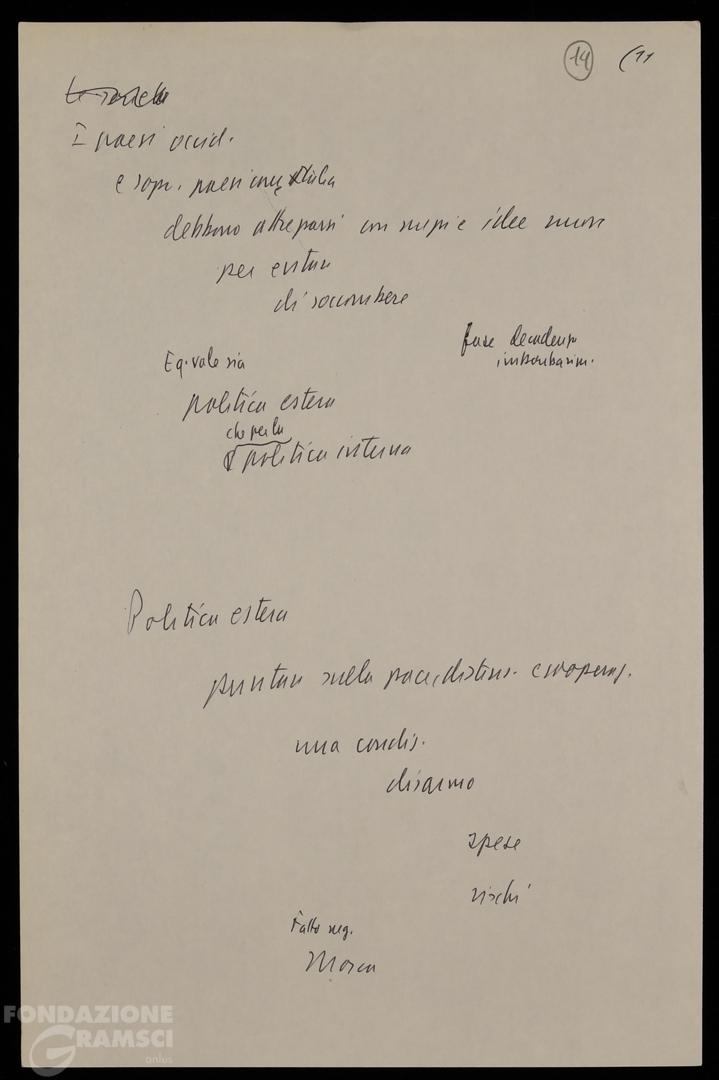 14 (11
I paesi occid.
e sopr. paesi come Italia
debbono attrezzarsi con mezzi e idee nuove
per evitare
di soccombere
fase decadenza
imbarbarim.
E q. vale sia
politica estera
che per la
politica interna
Politica estera
puntare sulla pace, distens. e cooperaz.
una condiz.
disarmo
spese
rischi
Fatto neg.
Mosca
FONDAZIONE
GRAMSCI
onlus